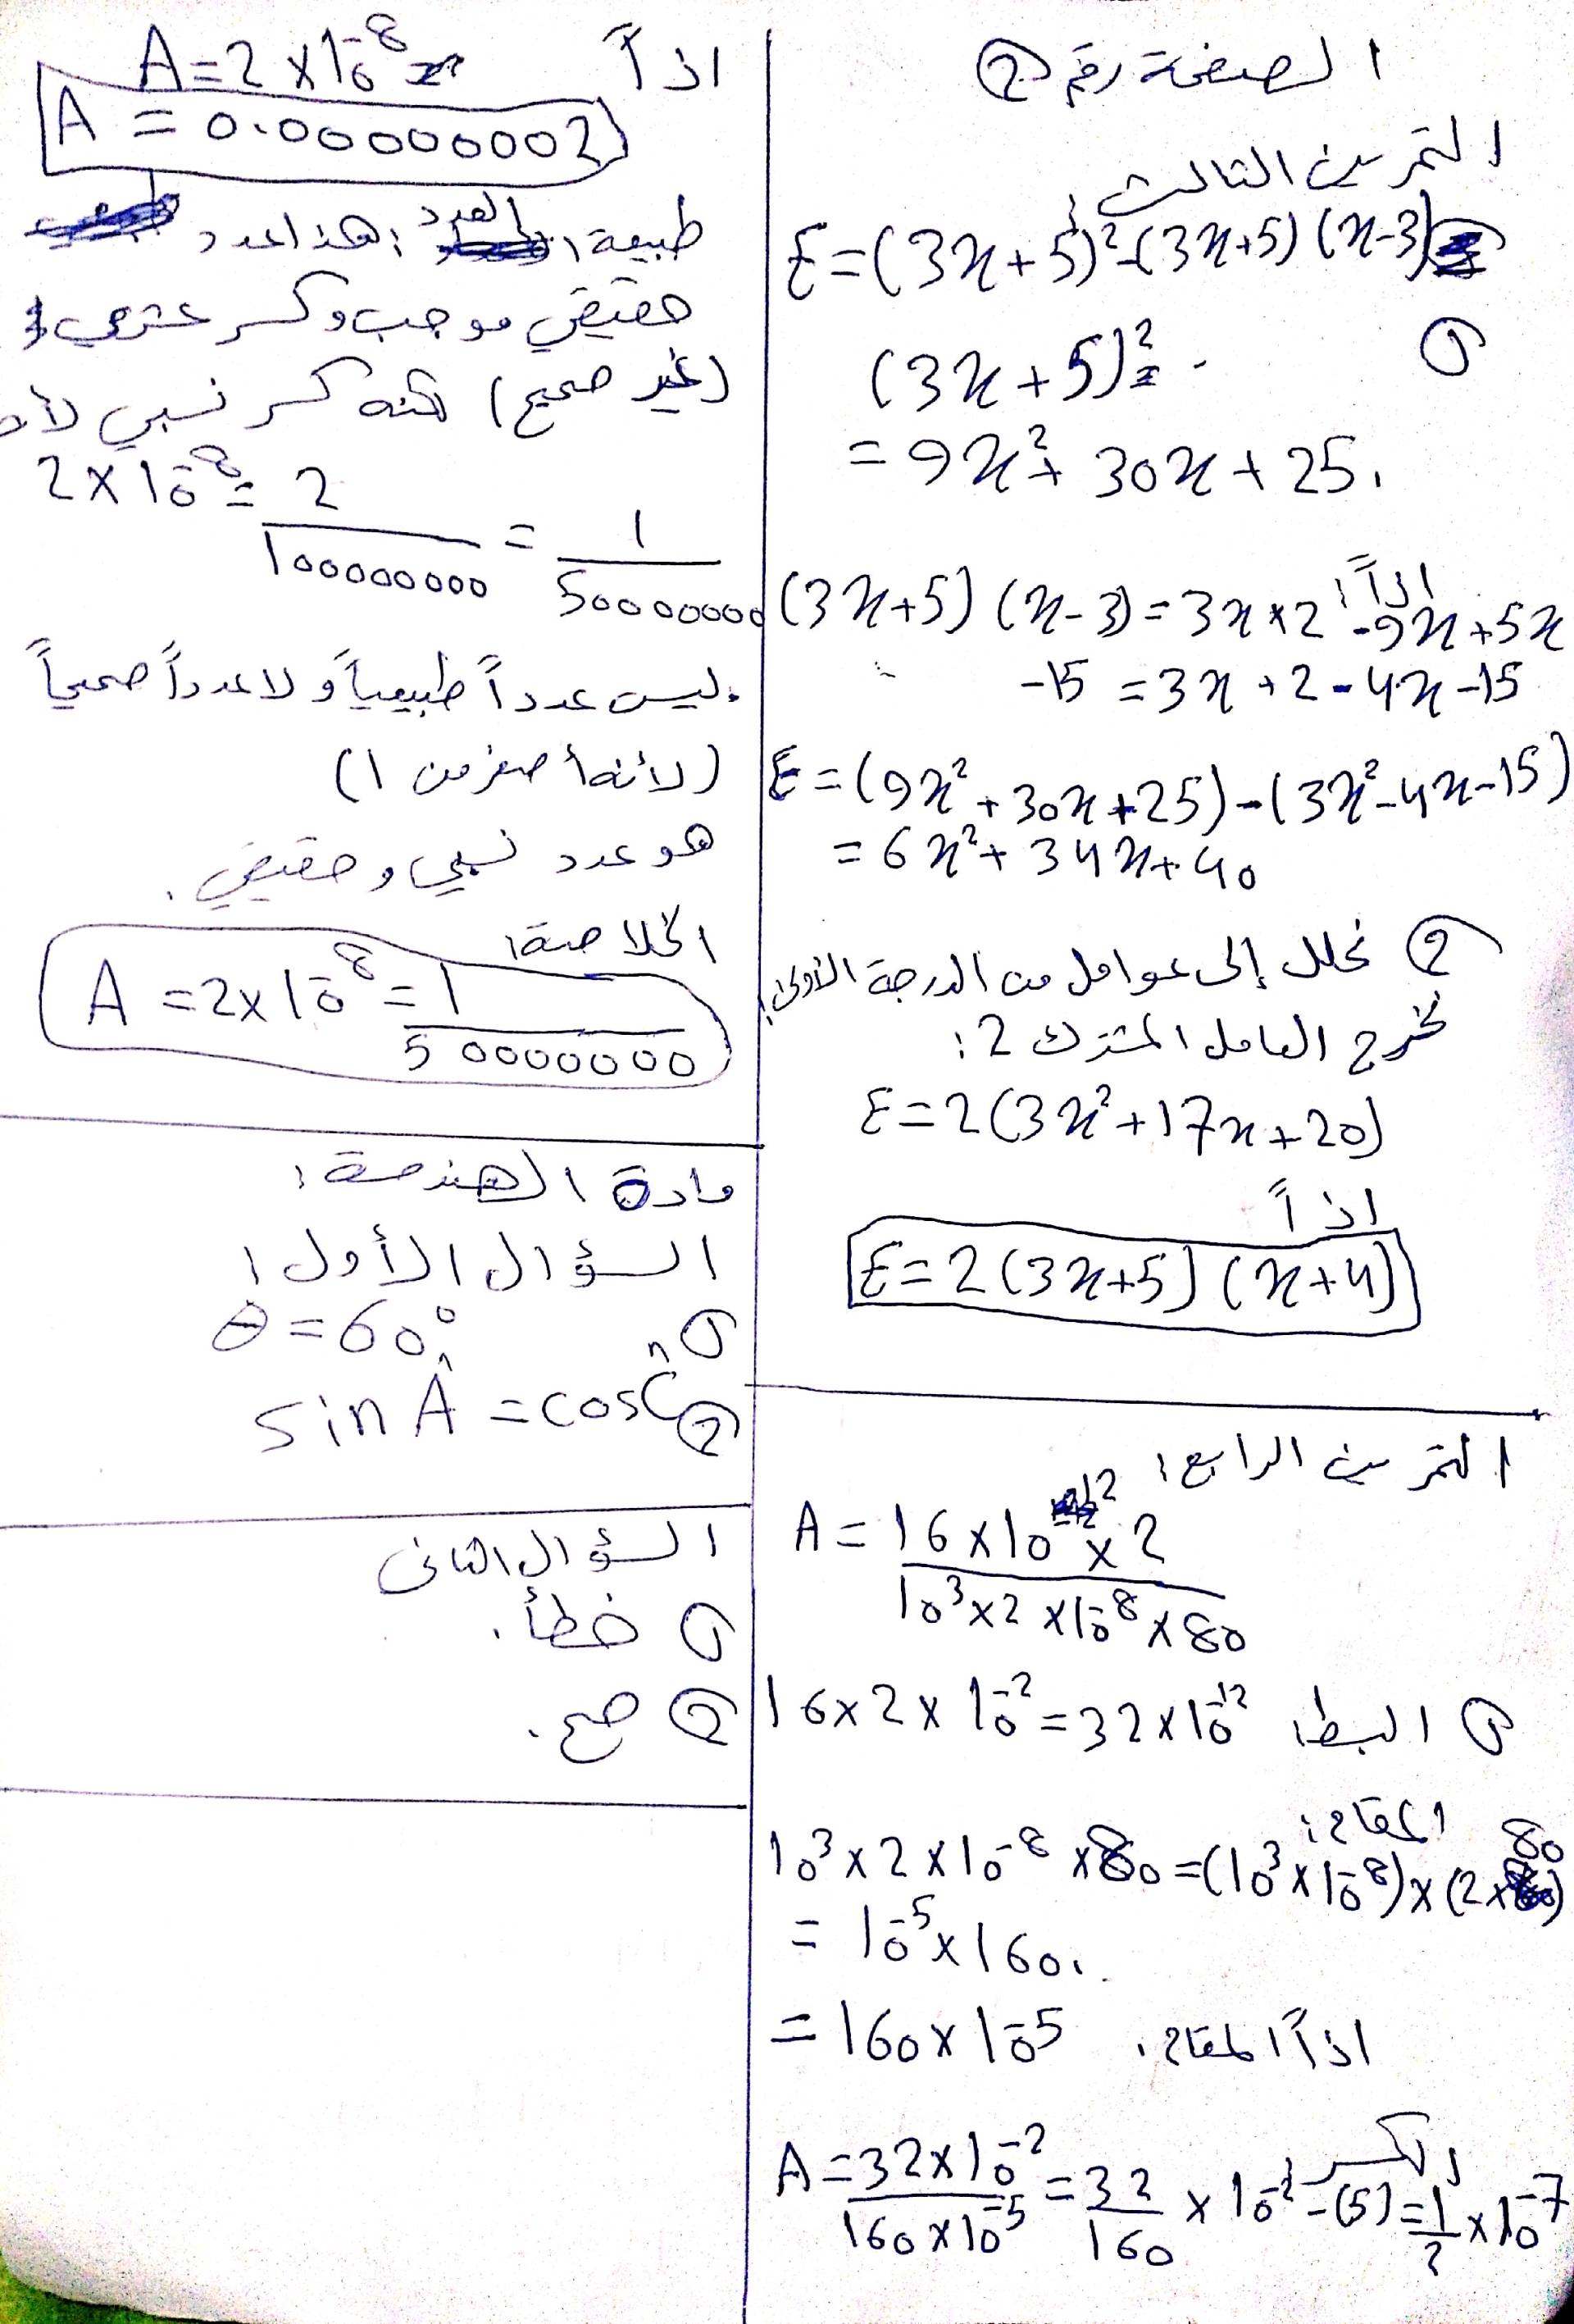 الصفحة رقم 2
التمرين الثالث
E=(3x+5)²-(3x+5)(x-3)
1
(3x+5)²=
=9x²+30x+25.
اذاً:
(3x+5)(x-3)=3x×2-9x+5x
-15=3x+2-4x-15
E=(9x²+30x+25)-(3x²-4x-15)
=6x²+34x+40
2 نحلل إلى عوامل من الدرجة الأولى:
نخرج العامل المشترك 2:
E=2(3x²+17x+20)
اذاً
E=2(3x+5)(x+4)
التمرين الرابع:
A=16×10⁻¹²×2
10³×2×10⁻⁸×80
1 البسط: 16×2×10⁻²=32×10⁻¹²
المقام:
10³×2×10⁻⁸×80=(10³×10⁻⁸)×(2×80)
=10⁻⁵×160.
=160×10⁻⁵ اذاً المقام.
الكسر
A=32×10⁻²/160×10⁻⁵=32/160×10⁻²-(5)=1/2×10⁻⁷
اذاً A=2×10⁻⁸
A=0.00000002
طبيعة العدد: هذا عدد
حقيقي موجب وكسر عشري
(غير صحيح) لكنه كسر نسبي لأن
2×10⁻⁸=2/100000000=1/50000000
ليس عدداً طبيعياً ولا عدداً صحيحاً
(لأنه أصغر من 1)
هو عدد نسبي و حقيقي.
الخلاصة:
A=2×10⁻⁸=1/50000000
مادة الهندسة:
السؤال الأول:
1 θ=60°
2 sin Â=cosĈ
السؤال الثاني
1 خطأ.
2 صح.